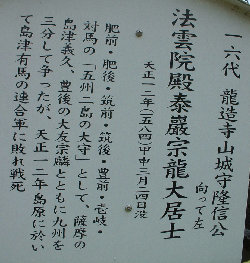 一六代 龍造寺山城守隆信公
向って左
法雲院殿泰巖宗龍大居士
天正一二年(一五八四)甲申三月二四日没
肥前・肥後・筑前・筑後・豊前・壱岐・
対馬の「五州二島の太守」として、薩摩の
島津義久、豊後の大友宗麟とともに九州を
三分して争ったが、天正一二年島原に於い
て島津有馬の連合軍に敗れ戦死